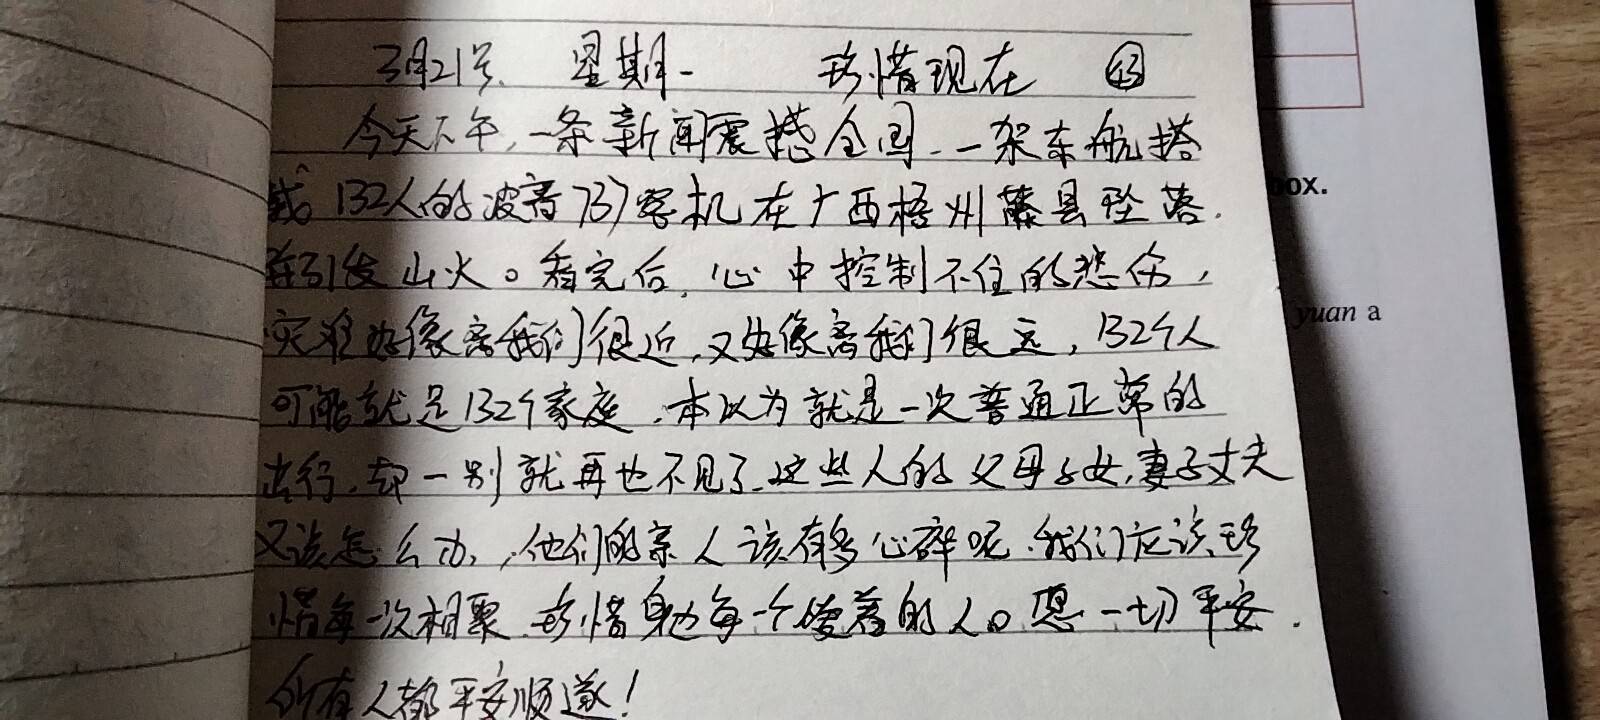 3月21号、 星期一 珍惜现在 43
今天下午,一条新闻震撼全国、一架东航搭
载132人的波音737客机在广西梧州藤县坠落.
并引发山火。看完后,心中控制不住的悲伤,
灾难好像离我们很近,又好像离我们很远,132个人
可能就是132个家庭.本以为就是一次普通正常的
出行,却一别就再也不见了、这些人的父母子女,妻子丈夫
又该怎么办,他们的亲人该有多心碎呢.我们应该珍
惜每一次相聚、珍惜身边每一个的人。愿一切平安.
所有人都平安顺遂!
box.
yuan a